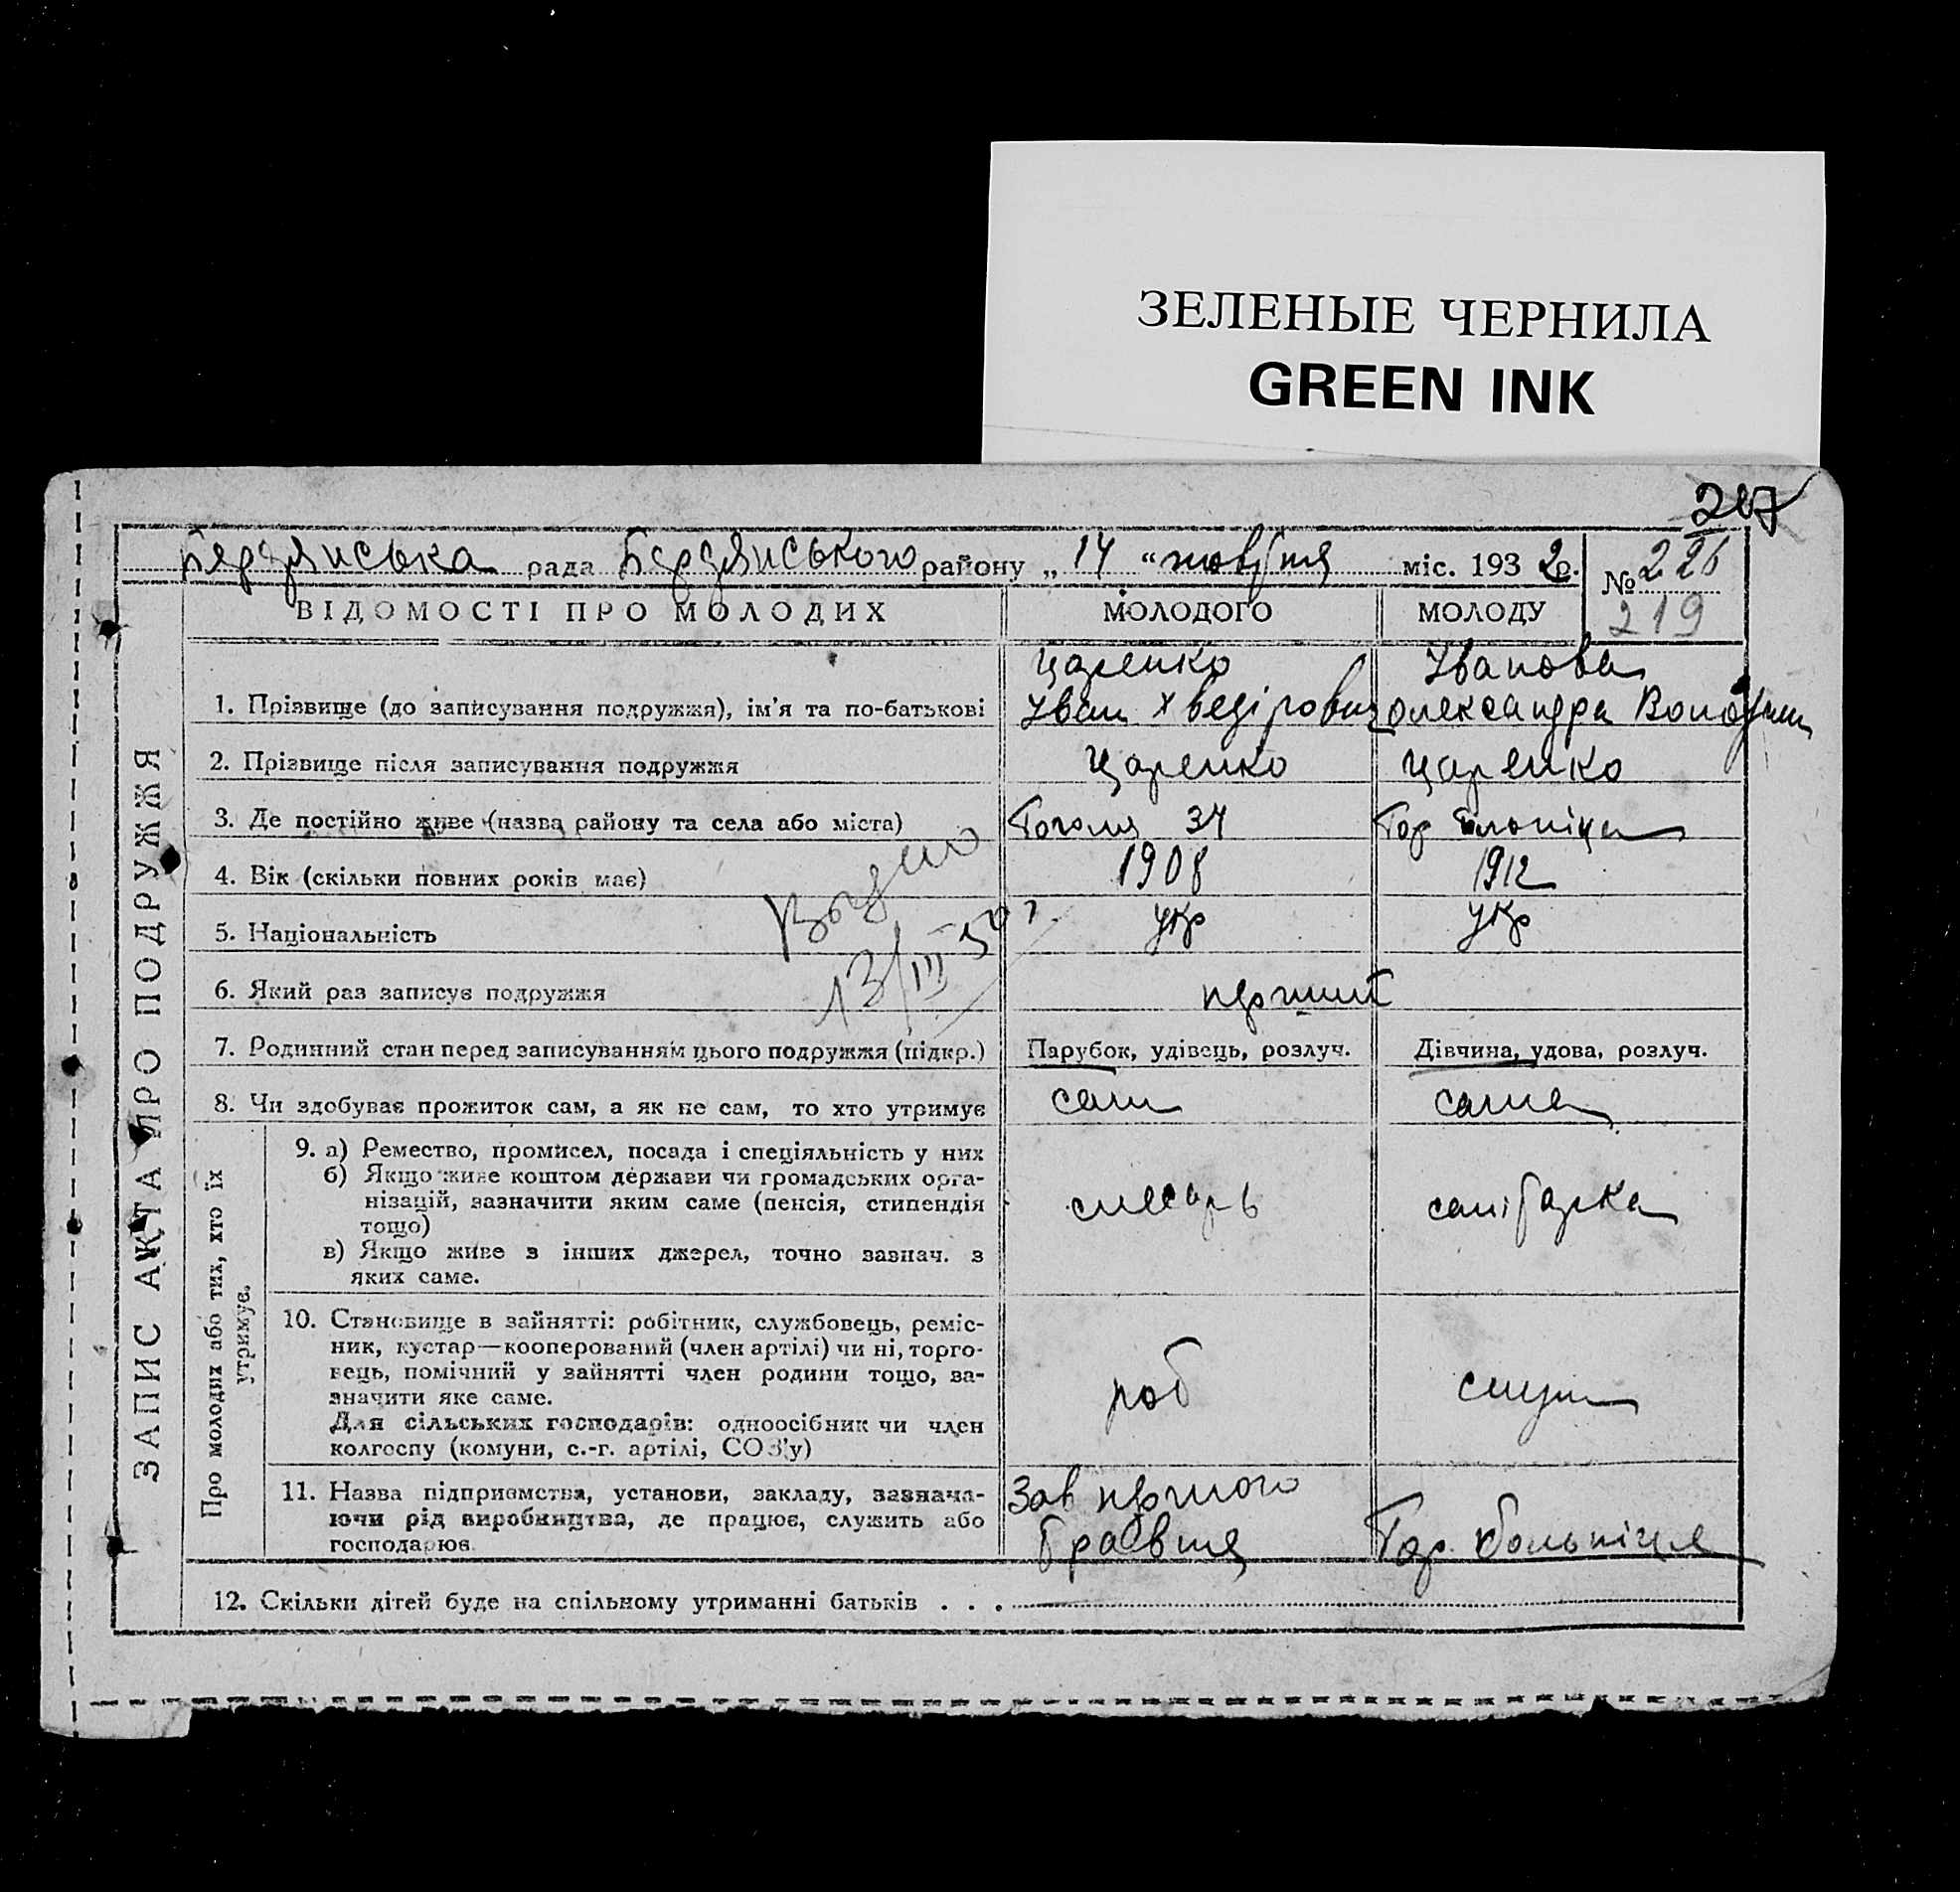 ЗЕЛЕНЫЕ ЧЕРНИЛА
GREEN INK
207
Бердянська рада Бердянського району „ 14 “ жовтня міс. 193 2 р.
№ 226
219
ВІДОМОСТІ ПРО МОЛОДИХ МОЛОДОГО МОЛОДУ
ЗАПИС АКТА ПРО ПОДРУЖЖЯ
Царенко Іванова
1. Прізвище (до записування подружжя), ім'я та по-батькові Іван Хведірович Олександра
2. Прізвище після записування подружжя Царенко Царенко
3. Де постійно живе (назва району та села або міста) Гоголя 34 Гор
4. Вік (скільки повних років має) 1908 1912
5. Національність укр укр
13/III 50 г
6. Який раз записує подружжя перший
7. Родинний стан перед записуванням цього подружжя (підкр.) Парубок, удівець, розлуч. Дівчина, удова, розлуч.
8. Чи здобуває прожиток сам, а як не сам, то хто утримує сам сама
Про молодих або тих, хто їх
утримує.
9. а) Ремество, промисел, посада і спеціяльність у них
б) Якщо живе коштом держави чи громадських орга-
нізацій, зазначити яким саме (пенсія, стипендія
тощо)
в) Якщо живе з інших джерел, точно зазнач. з
яких саме.
слесарь санітарка
10. Становище в зайнятті: робітник, службовець, реміс-
ник, кустар—кооперований (член артілі) чи ні, торго-
вець, помічний у зайнятті член родини тощо, за-
значити яке саме.
Для сільських господарів: одноосібник чи член
колгоспу (комуни, с.-г. артілі, СОЗ'у)
роб служ
11. Назва підприємства, установи, закладу, зазнача-
ючи рід виробництва, де працює, служить або
господарює
Зав першого
травня Гор. больніця
12. Скільки дітей буде на спільному утриманні батьків . . .